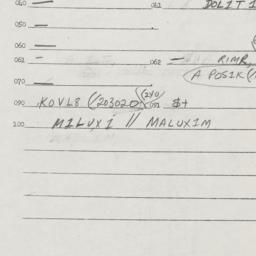 040 — 041 DOLIT1
050 —
060 —
061 - 062 — RIMR,
070 — A POSIK
090 KOVL8 (/203020 (240 092 $+
100 M1LUX1 // MALUX1M